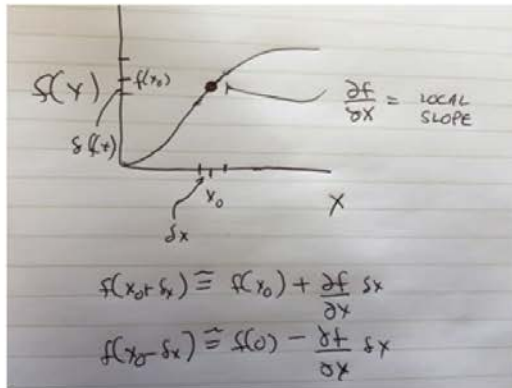 f(x)
f(x₀)
δf(x)
∂f/∂x = LOCAL
SLOPE
x₀
X
δx
f(x₀+δx) ≅ f(x₀) + ∂f/∂x δx
f(x₀-δx) ≅ f(0) - ∂f/∂x δx